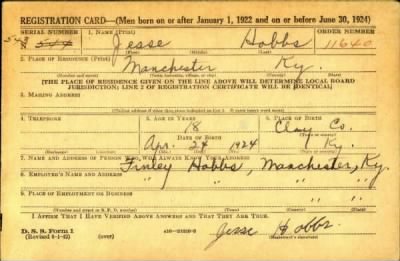 REGISTRATION CARD—(Men born on or after January 1, 1922 and on or before June 30, 1924)
SERIAL NUMBER 1. NAME (Print) ORDER NUMBER
544 Jesse Hobbs 11640
(First) (Middle) (Last)
2. PLACE OF RESIDENCE (Print)
Manchester Ky.
(Number and street) (Town, township, village, or city) (County) (State)
[THE PLACE OF RESIDENCE GIVEN ON THE LINE ABOVE WILL DETERMINE LOCAL BOARD
JURISDICTION; LINE 2 OF REGISTRATION CERTIFICATE WILL BE IDENTICAL]
3. MAILING ADDRESS
[Mailing address if other than place indicated on line 2. If same insert word same]
4. TELEPHONE 5. AGE IN YEARS 6. PLACE OF BIRTH
18 Clay Co.
DATE OF BIRTH
Apr. 24 1924 Ky.
(Exchange) (Number) (Mo.) (Day) (Yr.) (State or country)
7. NAME AND ADDRESS OF PERSON WHO WILL ALWAYS KNOW YOUR ADDRESS
Finley Hobbs, Manchester, Ky.
8. EMPLOYER'S NAME AND ADDRESS
" " " "
9. PLACE OF EMPLOYMENT OR BUSINESS
" " " "
(Number and street or R. F. D. number) (Town) (County) (State)
I AFFIRM THAT I HAVE VERIFIED ABOVE ANSWERS AND THAT THEY ARE TRUE.
D. S. S. Form 1
Jesse Hobbs.
(Registrant's signature)